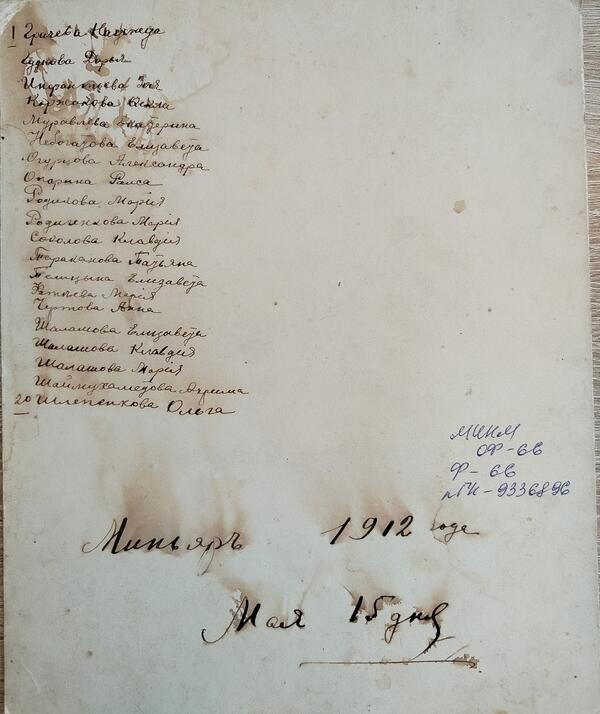 1 Грачева Надежда
Гудкова Дарья
Инфантьева Зоя
Коржакова Анна
Муравлева Екатерина
Небогатова Елизавета
Огурцова Александра
Опарина Раиса
Родикова Марія
Родиченкова Марія
Соколова Клавдія
Тараканова Татьяна
Телицына Елизавета
Марія
Чертова Анна
Шалашова Елизавета
Шалашова Клавдія
Шалашова Марія
Шаймухаметова
20 Шлепенкова Ольга
МИКМ
ОФ-66
Ф-66
пГК-9336896
Миньяръ 1912 года
Мая 15 дня